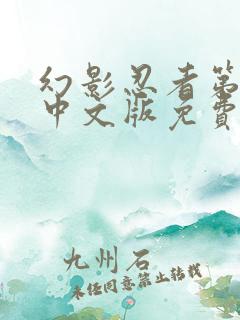 幻影忍者第
中文版免费
九州石
未经同意禁止转载